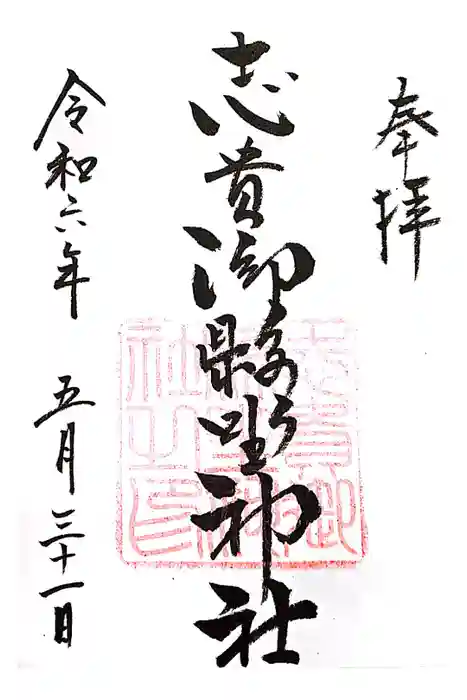 奉拝
志貴御縣坐神社
令和六年 五月三十一日